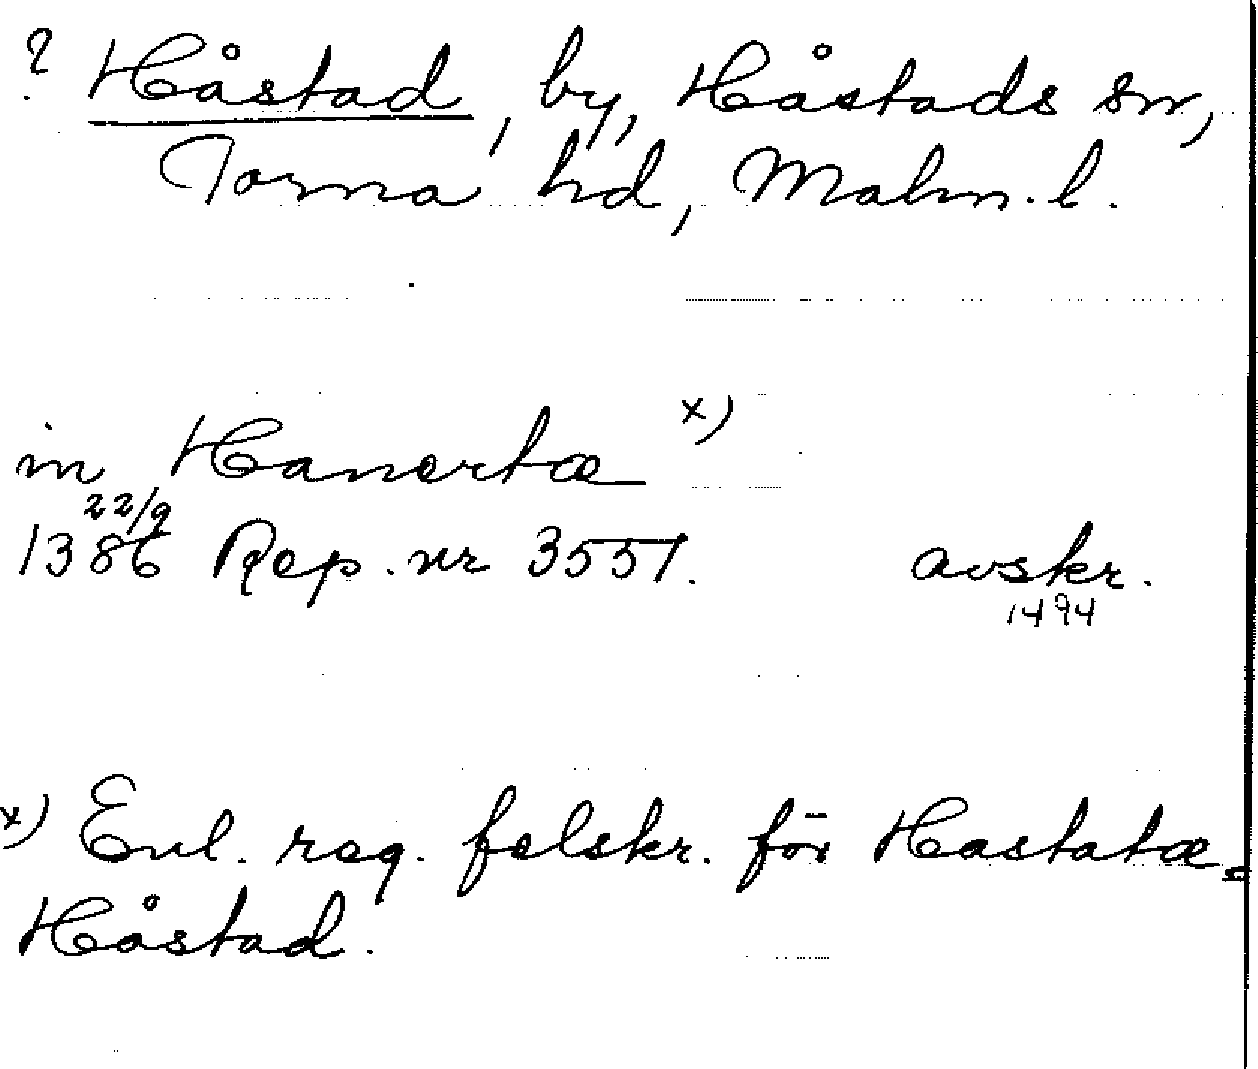 ? Håstad, by, Håstads sn,
Torna hd, Malm. l.
in Hanertæ x)
22/9
1386 Rep. nr 3551. avskr.
1494
x) Enl. reg. felskr. för Hastatæ =
Håstad.